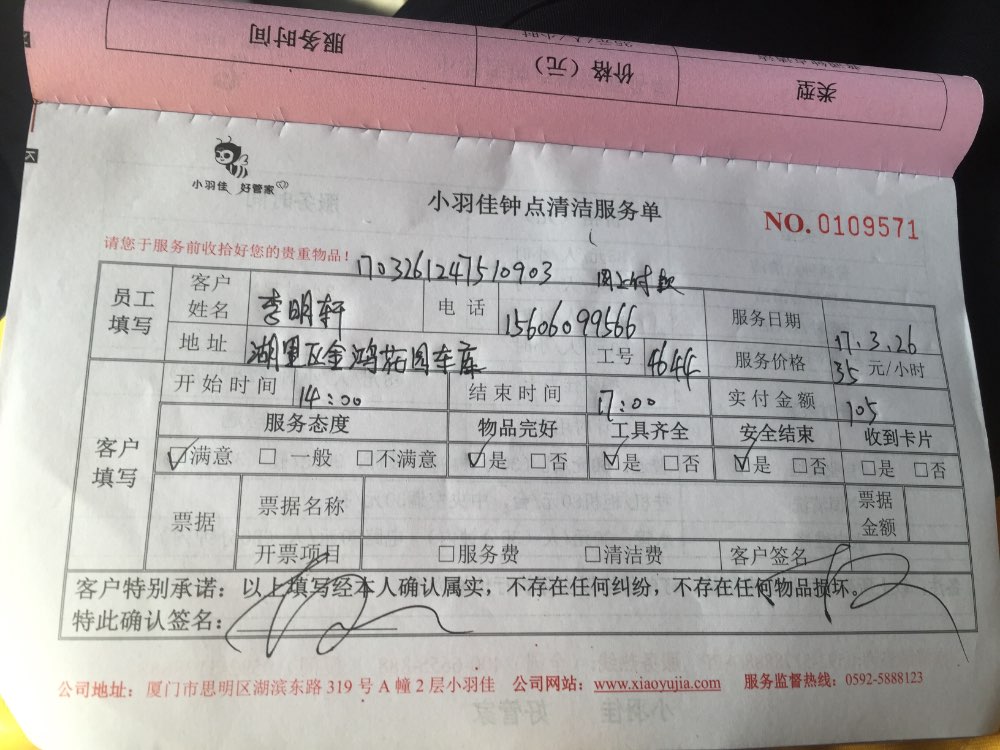 服务时间
价格（元）
类型
小羽佳 好管家
小羽佳钟点清洁服务单
NO. 0109571
请您于服务前收拾好您的贵重物品！
1703261247510903 网上付款
员工填写 客户姓名 李明轩 电话 15606099566 服务日期 17.3.26
地址 湖里区金鸿花园车库 工号 4644 服务价格 35 元/小时
开始时间 14:00 结束时间 17:00 实付金额 105
客户填写 服务态度 物品完好 工具齐全 安全结束 收到卡片
☑满意 □一般 □不满意 ☑是 □否 ☑是 □否 ☑是 □否 □是 □否
票据 票据名称 票据金额
开票项目 □服务费 □清洁费 客户签名
客户特别承诺：以上填写经本人确认属实，不存在任何纠纷，不存在任何物品损坏。
特此确认签名：
公司地址：厦门市思明区湖滨东路 319 号 A 幢 2 层小羽佳 公司网站：www.xiaoyujia.com 服务监督热线：0592-5888123